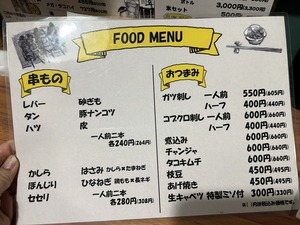 FOOD MENU
串もの
レバー 砂ぎも
タン 豚ナンコツ
ハツ 皮
一人前二本
各240円(264円)
かしら はさみ かしら×たまねぎ
ぼんじり ひなねぎ 鶏もも×長ネギ
セセリ 一人前二本
各280円(308円)
おつまみ
ガツ刺し 一人前 550円(605円)
ハーフ 400円(440円)
コブクロ刺し 一人前 600円(660円)
ハーフ 400円(440円)
煮込み 600円(660円)
チャンジャ 600円(660円)
タコキムチ 600円(660円)
枝豆 450円(495円)
あげ焼き 450円(495円)
生キャベツ 特製ミソ付 300円(330円)
※( )内は税込み価格です。
氷セット
3,000円(3,300円)